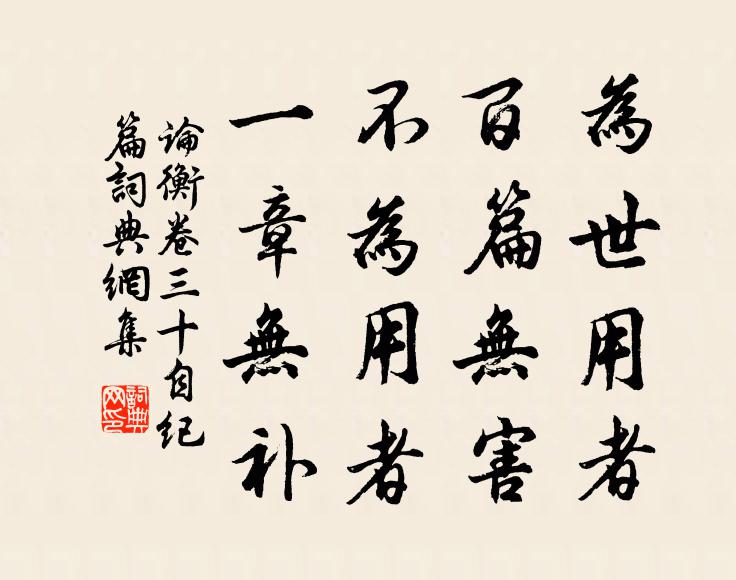 為世用者
百篇無害
不為用者
一章無补
論衡卷三十自纪
篇詞典網集
詞典
网印